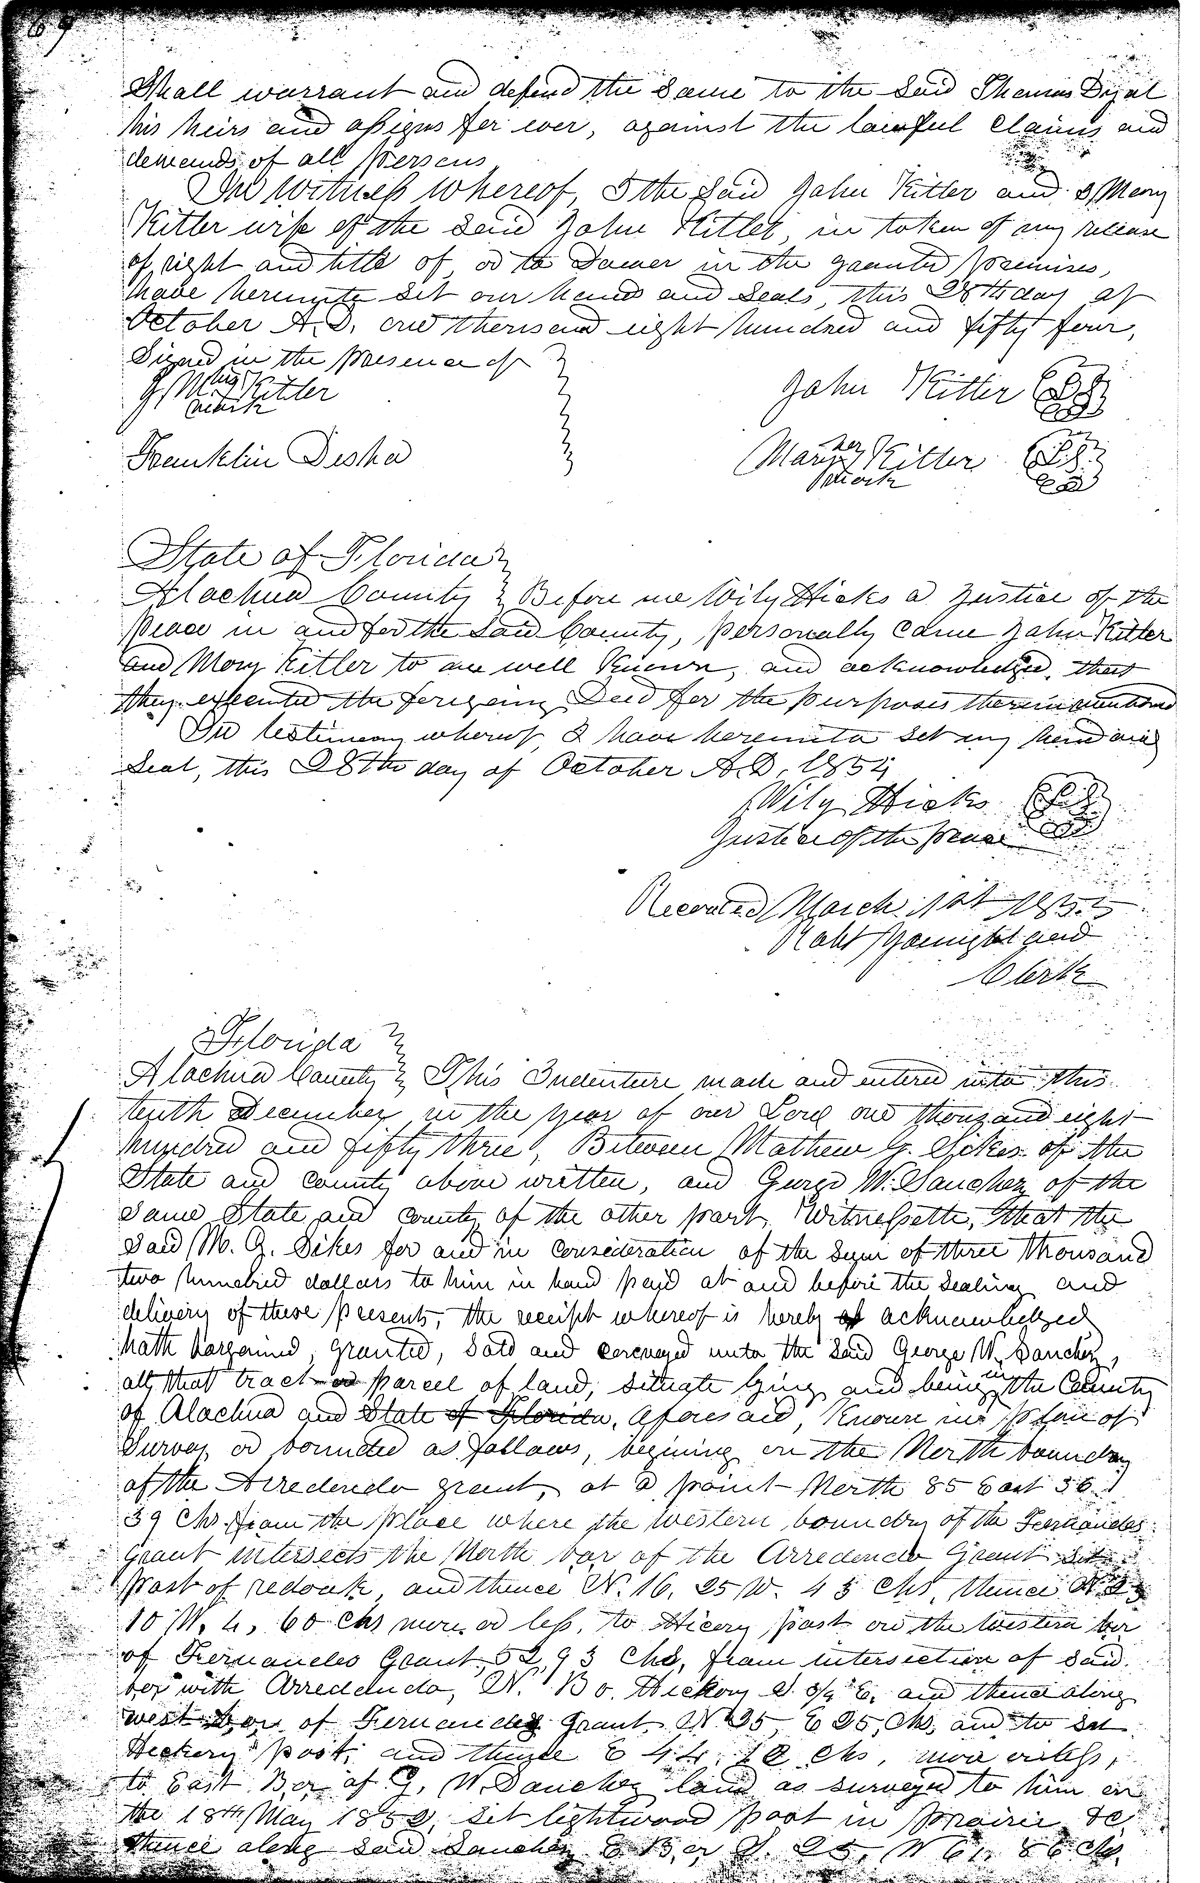 Shall warrant and defend the same to the said Thomas
his heirs and assigns for ever, against the lawful claims and
demands of all persons
In witness whereof, I the said John Kitler and I Mary
Kitler wife of the said John Kitler, in token of my release
of right and title of, or to Dower in the granted premises,
have hereunto set our hands and seals, this 28th day of
October A.D. one thousand eight hundred and fifty four,
Signed in the presence of
J. M. his Kitler
mark
John Kitler L.S.
Franklin Desha
Mary her Kitler L.S.
mark
State of Florida
Alachua County Before me Wily Hicks a Justice of the
peace in and for the said County, personally came John Kitler
and Mary Kitler to me well known, and acknowledged, that
they executed the foregoing Deed for the purposes therein mentioned
In testimony whereof, I have hereunto set my hand and
Seal, this 28th day of October A.D. 1854
Wily Hicks L.S.
Justice of the peace
Recorded March 1st 1855
Clerk
Florida
Alachua County This Indenture made and entered into this
tenth December in the year of our Lord one thousand eight
hundred and fifty three, Between Mathew G. Sikes of the
State and county above written, and George W. Sanchez of the
same State and county of the other part, Witnesseth, that the
said M. G. Sikes for and in consideration of the sum of three thousand
two hundred dollars to him in hand paid at and before the sealing and
delivery of these presents, the receipt whereof is hereby acknowledged
hath bargained, granted, sold and conveyed unto the said George W. Sanchez,
all that tract or parcel of land, situate lying and being in the County
of Alachua and State of Florida, aforesaid, known in plan of
Survey or bounded as follows, begining on the North boundry
of the Arredondo grant, at a point North 85 East 36
39 chs from the place where the western boundry of the Fernandes
grant intersects the North bor of the Arredondo Grant
post of redoak, and thence N. 16, 25 W. 43 chs, thence N.
10 W. 4, 60 chs more or less, to Hicory post on the western bor
of Fernandes Grant, 52,93 chs, from intersection of said
bor with Arredondo, N. Bo. Hickory S. 3/4 E. and thence along
west bor of Fernandez grant N 25, E 25, chs, and to set
Hickory post, and thence E 44. 12 chs, more or less,
to East Bor of G. W. Sanchez land as surveyed to him on
the 18th May 1852, set lightwood post in prairie &c.
thence along said Sanchez E Bor S. 25, W 61. 86 chs.